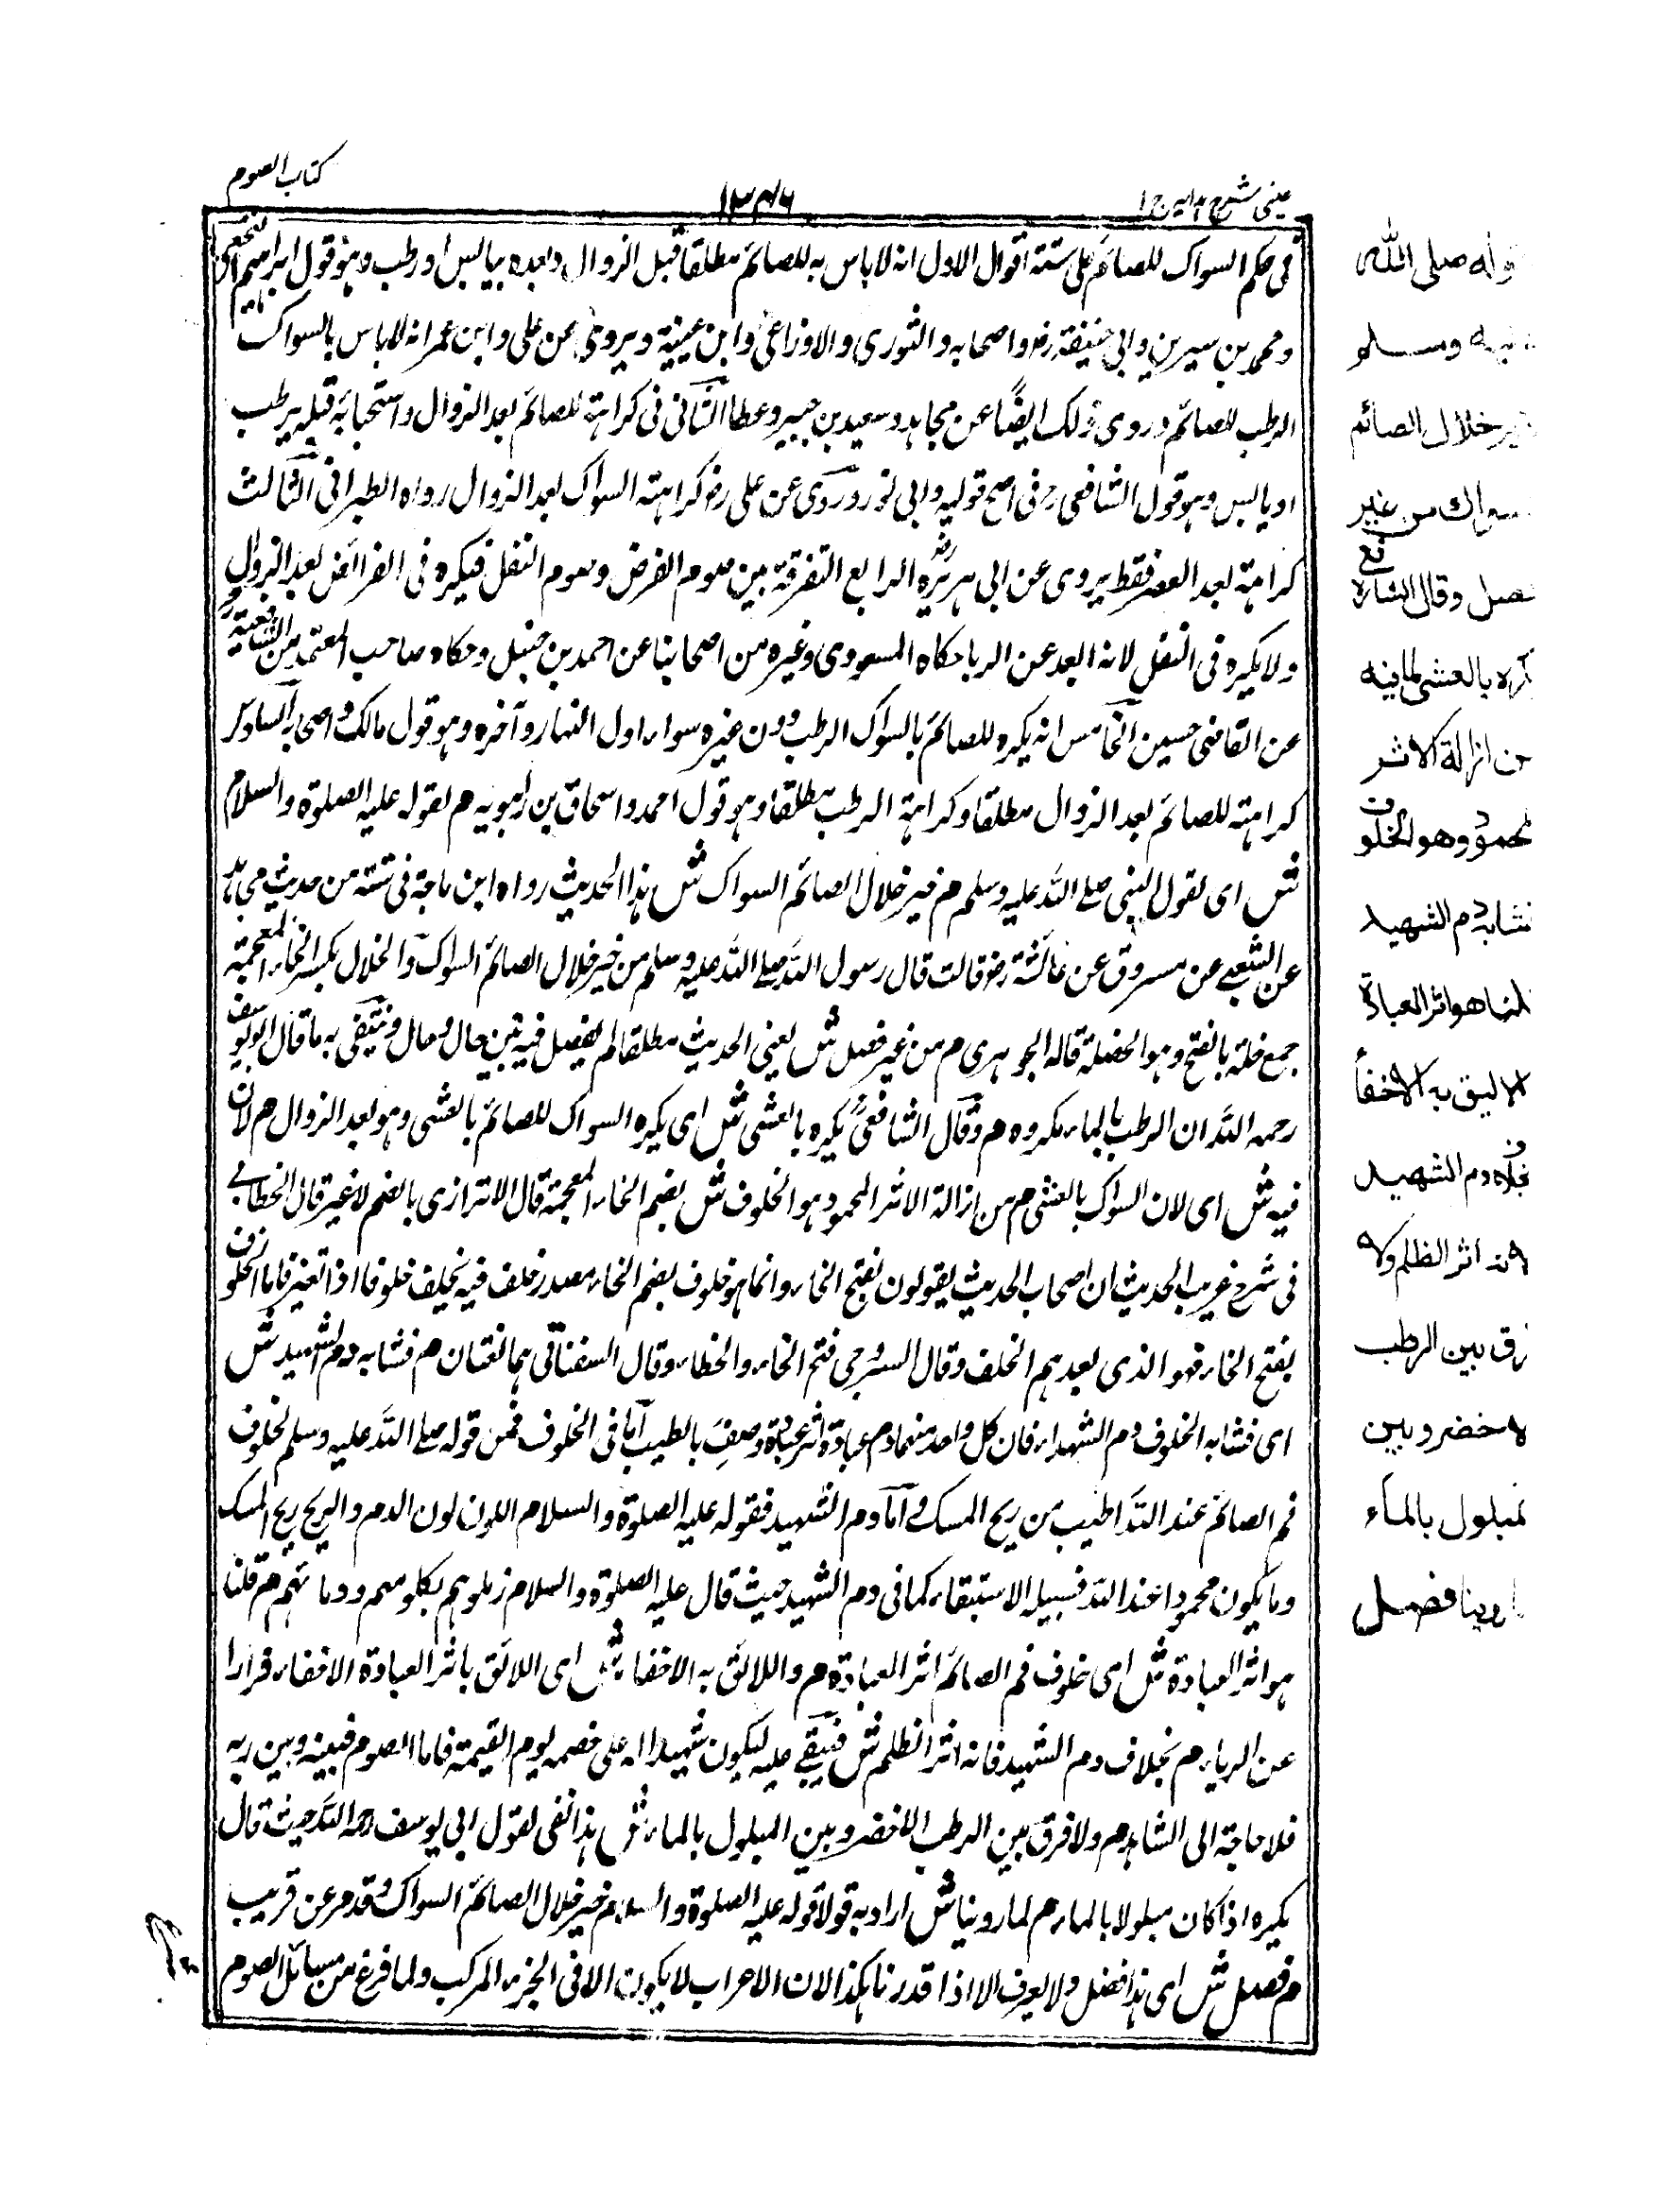 عینی شرح ہدایہ ج ا
۱۳۴۶
کتاب الصوم
فی حکم السواک للصائم علی ستة اقوال الاول انه لا باس به للصائم مطلقا قبل الزوال وبعده بیابس او رطب وهو قول ابراہیم النخعی
ومحمد بن سیرین وابی حنیفة رض واصحابه والثوری والاوزاعی وابن عیینة ویروی عن علی وابن عمر انه لا باس بالسواک
الرطب للصائم وروی ذلک ایضًا عن مجاهد وسعید بن جبیر وعطا الثانی فی کراهة للصائم بعد الزوال واستحبابه قبله برطب
او یابس وهو قول الشافعی رح فی اصح قولیه وابی ثور وروی عن علی رض کراهته السواک بعد الزوال رواه الطبرانی الثالث
کراهة بعد العصر فقط یروی عن ابی هریرة رض الرابع التفرقة بین صوم الفرض وصوم النفل فیکره فی الفرائض بعد الزوال
ولا یکره فی النفل لانه ابعد عن الریا حکاه المسعودی وغیره من اصحابنا عن احمد بن حنبل وحکاه صاحب المعتمد من الشافعیة
عن القاضی حسین الخامس انه یکره للصائم بالسواک الرطب دون غیره سواء اول النهار وآخره وهو قول مالک واصحابه السادس
کراهته للصائم بعد الزوال مطلقا وکراهة الرطب مطلقا وهو قول احمد واسحاق بن راهویه م لقوله علیه الصلوة والسلام
ش ای لقول النبی صلے اللہ علیه وسلم م خیر خلال الصائم السواک ش هذا الحدیث رواه ابن ماجة فی سننه من حدیث مجاهد
عن الشعبے عن مسروق عن عائشة رض قالت قال رسول اللہ صلے اللہ علیه وسلم من خیر خلال الصائم السواک والخلال بکسر الخاء المعجمة
جمع خلة بالفتح وهو الخصلة قاله الجوهری م من غیر فصل ش یعنی الحدیث مطلقا لم یفصل فیه بین حال وحال وینتفی به ما قال ابو یوسف
رحمه اللہ ان الرطب بالماء مکروه م وقال الشافعی رح یکره بالعشی ش ای یکره السواک للصائم بالعشی وهو بعد الزوال م لان
فیه ش ای لان السواک بالعشی م من ازالة الاثر المحمود هو الخلوف ش بضم الخاء المعجمة قال الاترازی بالضم لا غیر قال الخطابی
فی شرح غریب الحدیث ان اصحاب الحدیث یقولون بفتح الخاء وانما هو خلوف بضم الخاء مصدر خلف فیه یخلف خلوفا اذا تغیر فاما الخلوف
بفتح الخاء فهو الذی بعدهم الخلف وقال السروجی فتح الخاء والخطاء وقال السغناقی هما لغتان م فشابه دم الشهید ش
ای فشابه الخلوف دم الشهداء فان کل واحد منهما دم عبادة اثر عبادة وصف بالطیب اما فی الخلوف فمن قوله صلے اللہ علیه وسلم لخلوف
فم الصائم عند اللہ اطیب من ریح المسک واما دم الشهید فقوله علیه الصلوة والسلام اللون لون الدم والریح ریح المسک
وما یکون محمودا عند اللہ فسبیله الاستبقاء کما فی دم الشهید حیث قال علیه الصلوة والسلام زملوهم بکلومهم ودمائهم م قلنا
هو اثر العبادة ش ای خلوف فم الصائم اثر العبادة م واللائق به الاخفاء ش ای اللائق باثر العبادة الاخفاء فرارا
عن الریاء م بخلاف دم الشهید فانه اثر الظلم ش فیبقے علیه لیکون شهیدا له علی خصمه یوم القیمة فاما الصوم فبینه وبین ربه
فلا حاجة الی الشاهد م ولا فرق بین الرطب الاخضر وبین المبلول بالماء ش هذا نفی لقول ابی یوسف رحمه اللہ حیث قال
یکره اذا کان مبلولا بالماء م لما روینا ش اراد به قوله علیه الصلوة والسلام خیر خلال الصائم السواک وقد مر عن قریب
م فصل ش ای هذا فصل ولا یعرف الا اذا قدرنا هکذا لان الاعراب لا یکون الا فی الجزء المرکب ولما فرغ من مسائل الصوم
وله صلی الله
علیه وسلم
خیر خلال الصائم
السواك من غیر
فصل وقال الشافع
یکره بالعشی لما فیه
من ازالة الاثر
المحمود وهو الخلوف
فشابه دم الشهید
قلنا هو اثر العبادة
الالیق به الاخفاء
بخلاف دم الشهید
لانه اثر الظلم ولا
فرق بین الرطب
الاخضر وبین
المبلول بالماء
لما روینا فصل